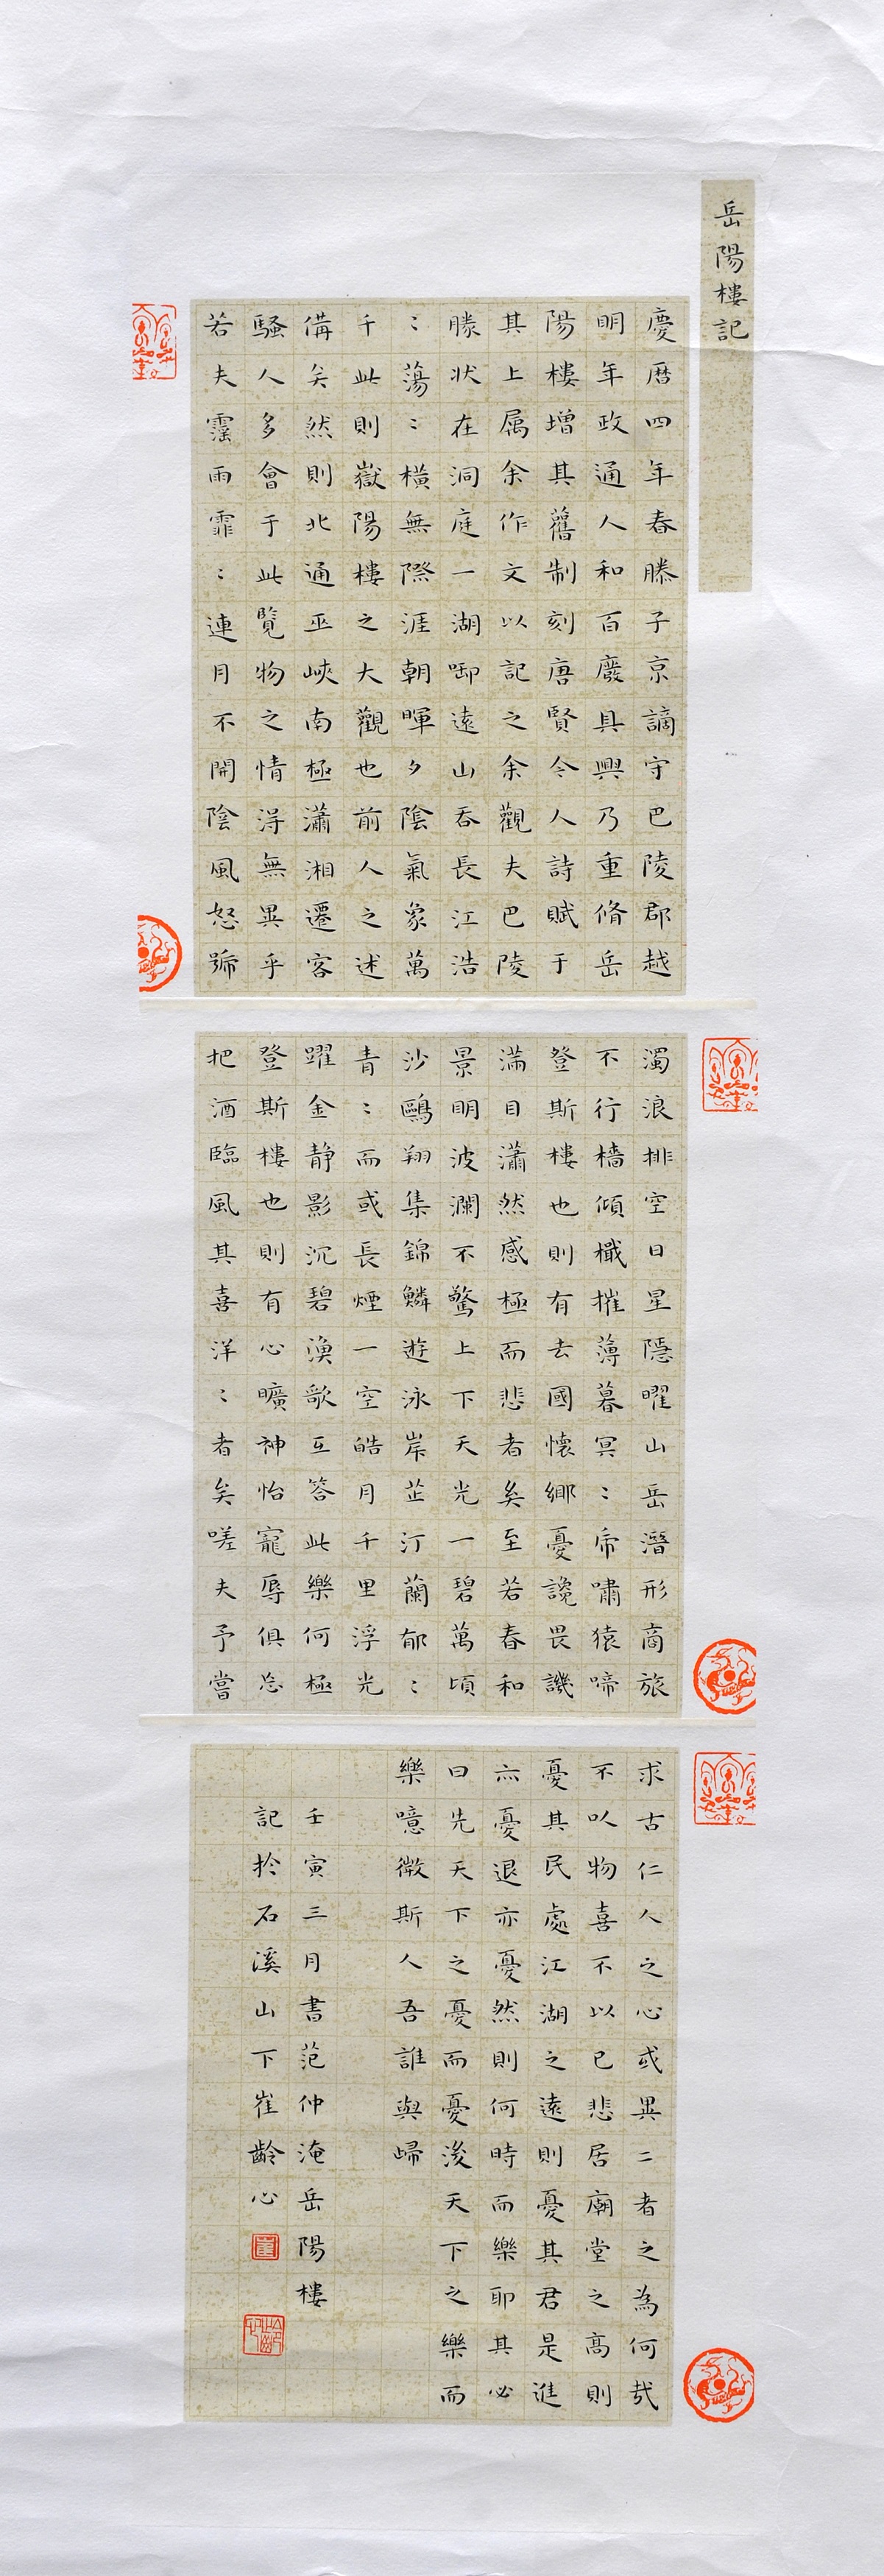 岳陽樓記
慶曆四年春滕子京謫守巴陵郡越
明年政通人和百廢具興乃重脩岳
陽樓增其舊制刻唐賢令人詩賦于
其上屬余作文以記之余觀夫巴陵
勝狀在洞庭一湖啣遠山吞長江浩
〻蕩〻橫無際涯朝暉夕陰氣象萬
千此則嶽陽樓之大觀也前人之述
備矣然則北通巫峽南極瀟湘遷客
騷人多會于此覽物之情得無異乎
若夫霪雨霏〻連月不開陰風怒號
濁浪排空日星隱曜山岳潛形商旅
不行檣傾檝摧薄暮冥〻虎嘯猿啼
登斯樓也則有去國懷鄉憂讒畏譏
滿目瀟然感極而悲者矣至若春和
景明波瀾不驚上下天光一碧萬頃
沙鷗翔集錦鱗遊泳岸芷汀蘭郁〻
青〻而或長煙一空皓月千里浮光
躍金静影沉碧漁歌互答此樂何極
登斯樓也則有心曠神怡寵辱俱忘
把酒臨風其喜洋〻者矣嗟夫予嘗
求古仁人之心或異二者之為何哉
不以物喜不以己悲居廟堂之高則
憂其民處江湖之遠則憂其君是進
亦憂退亦憂然則何時而樂耶其必
曰先天下之憂而憂後天下之樂而
樂噫微斯人吾誰與歸
壬寅三月書范仲淹岳陽樓
記於石溪山下崔齡心